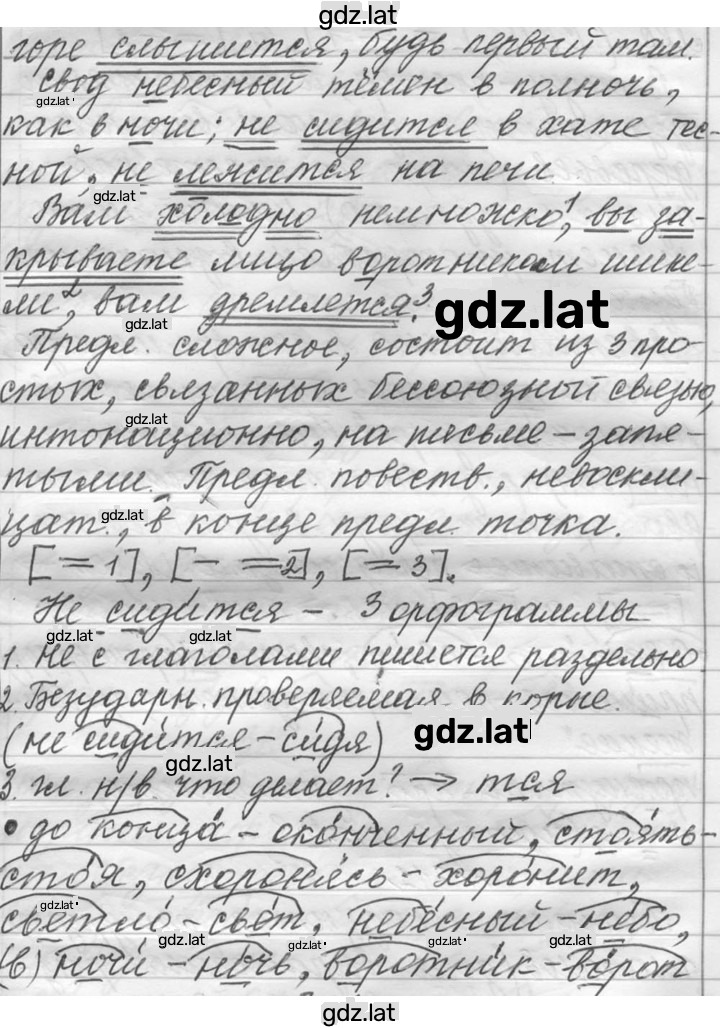 gdz.lat
горе слышится, будь первый там.
Свод небесный тёмен в полночь,
gdz.lat
как в ночи; не сидится в хате тес-
ной, не лежится на печи
gdz.lat
Вам холодно немножко¹, вы за-
крываете лицо воротником шине-
ли², вам дремлется.³
gdz.lat
gdz.lat
Предл. сложное, состоит из 3 про-
стых, связанных бессоюзной связью,
gdz.lat
интонационно, на письме – запя-
тыми. Предл. повеств., невоскли-
цат., в конце предл. точка.
gdz.lat
[= 1], [– = 2], [= 3].
Не сидится – 3 орфограммы
gdz.lat
gdz.lat
1. Не с глаголами пишется раздельно
2. Безударн. проверяемая в корне.
(не сидится – сидя)
gdz.lat
gdz.lat
3. гл. н/в что делает? → тся
• до конца – оконченный, стоять-
стоя, схоронясь – хоронит,
светло – свет, небесный – небо,
gdz.lat
gdz.lat
gdz.lat
gdz.lat
gdz.lat
(в) ночи – ночь, воротник – ворот
gdz.lat